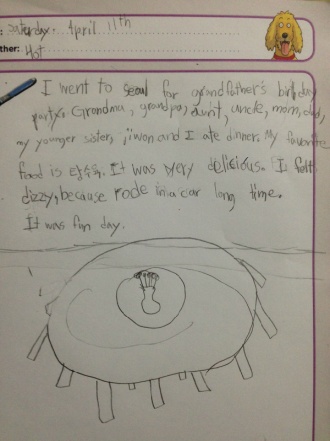 : Saturday. April 11th
ther: Hot
I went to seoul for grandfather's birthday
party. Grandma, grandpa, aunt, uncle, mom, dad,
my younger sister, jiwon and I ate dinner. My favorite
food is It was very delicious. I felt
dizzy, because rode in a car long time.
It was fun day.